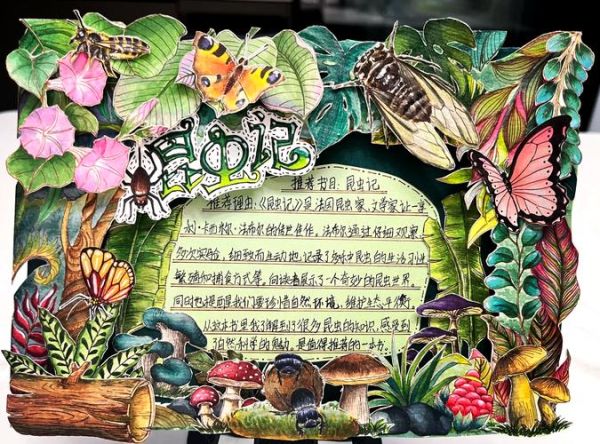 昆虫记
推荐书目:昆虫记
推荐理由:《昆虫记》是法国昆虫家、文学家让-亨
利·卡西米尔·法布尔的传世佳作,法布尔通过仔细观察
多次实验,细致而生动地记录了多种昆虫的生活习性
繁殖和捕食方式等。向读者展示了一个奇妙的昆虫世界。
同时也提醒我们要珍惜自然环境,维护生态平衡
从这本书里我了解到了很多昆虫的知识,感受到
了自然科学的魅力,是值得推荐的一本书。